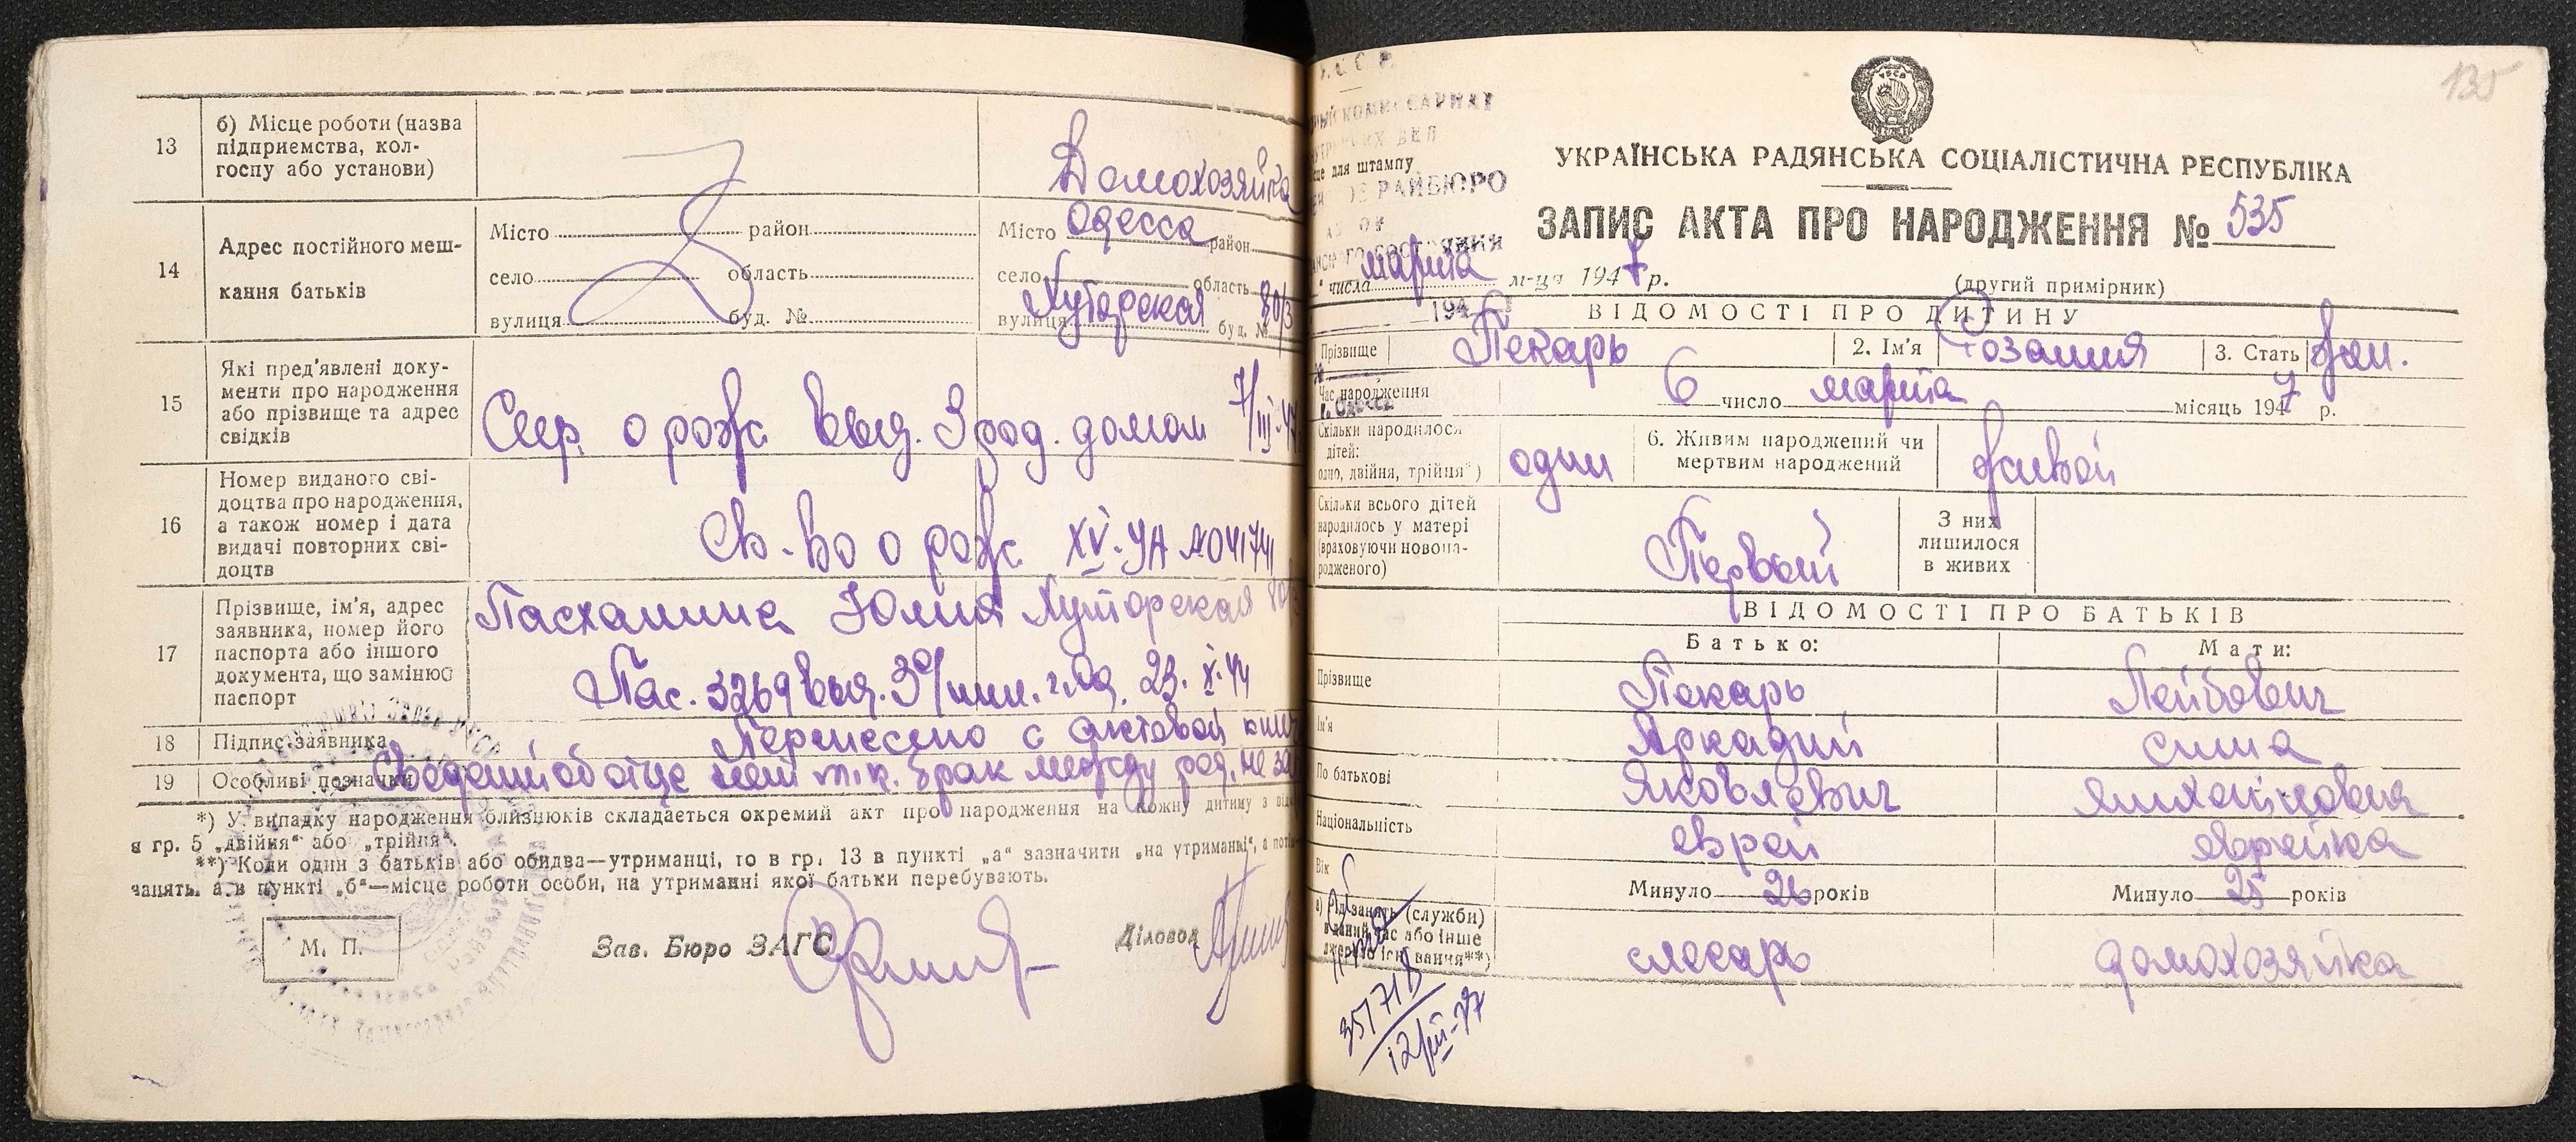 13
б) Місце роботи (назва
підприємства, кол-
госпу або установи)
Домохозяйка
14
Адрес постійного меш-
кання батьків
Місто район
село область
вулиця буд. №
Місто Одесса район
село область
вулиця Хуторская буд. № 80/3
15
Які пред'явлені доку-
менти про народження
або прізвище та адрес
свідків
о рожд. выд. 3 род. домом 7/III-47
16
Номер виданого сві-
доцтва про народження,
а також номер і дата
видачі повторних сві-
доцтв
Св-во о рожд. XV-УА №041741
17
Прізвище, ім'я, адрес
заявника, номер його
паспорта або іншого
документа, що замінює
паспорт
Юлия Хуторская 80/3
Пас. 3269 выд. 3 о/мил. г. Од. 23.X.44
18
Підпис заявника
Перенесено с актовой
19
Особливі позначки
Сведений об отце нет т.к. брак между род. не
*) У випадку народження близнюків складається окремий акт про народження на кожну дитину з
в гр. 5 „двійня" або „трійня".
**) Коли один з батьків або обидва—утриманці, то в гр. 13 в пункті „а" зазначити „на утриманні", а
занять, а в пункті „б"—місце роботи особи, на утриманні якої батьки перебувають.
М. П.
Зав. Бюро ЗАГС
Діловод
135
УКРАЇНСЬКА РАДЯНСЬКА СОЦІАЛІСТИЧНА РЕСПУБЛІКА
ЗАПИС АКТА ПРО НАРОДЖЕННЯ № 535
для штампу
РАЙБЮРО
числа марта м-ця 1947 р.
(другий примірник)
194
ВІДОМОСТІ ПРО ДИТИНУ
Прізвище Пекарь 2. Ім'я Розалия 3. Стать жен.
Час народження 6 число марта місяць 1947 р.
г. Одесса
Скільки народилося
дітей:
одно, двійня, трійня*)
один
6. Живим народжений чи
мертвим народжений
живой
Скільки всього дітей
народилось у матері
(враховуючи новона-
родженого)
Первый
З них
лишилося
в живих
ВІДОМОСТІ ПРО БАТЬКІВ
Батько: Мати:
Прізвище Пекарь Лейбович
Ім'я Аркадий Сима
По батькові Яковлевич
Національність еврей еврейка
Вік Минуло 26 років Минуло 25 років
а) Рід занять (служби)
в даний час або інше
джерело існування**)
слесарь домохозяйка
35171В
12/III-77